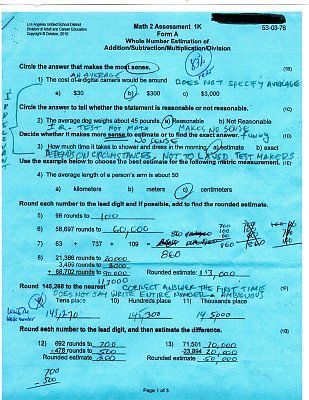 Los Angeles Unified School District
Division of Adult and Career Education
Copyright © October, 2010
Math 2 Assessment 1K
Form A
53-03-76
Whole Number Estimation of
Addition/Subtraction/Multiplication/Division
Circle the answer that makes the most sense. (1B)
AN AVERAGE
1) The cost of a digital camera would be around DOES NOT SPECIFY AVERAGE
a) $30 b) $300 c) $3,000
Circle the answer to tell whether the statement is reasonable or not reasonable. (1C)
2) The average dog weighs about 45 pounds. a) Reasonable b) Not Reasonable
I.Q. TEST NOT MATH MAKES NO SENSE
Decide whether it makes more sense to estimate or to find the exact answer. FUNNY
NO SENSE
3) How much time it takes to shower and dress in the morning a) estimate b) exact
DEPENDS ON CIRCUMSTANCES, NOT TO LAUSD TEST MAKERS
Use the example below to choose the best estimate for the following metric measurement. (1E)
4) The average length of a person's arm is about 50
a) kilometers b) meters c) centimeters
Round each number to the lead digit and if possible, add to find the rounded estimate.
5) 98 rounds to 100
6) 58,697 rounds to 60,000
7) 63 + 737 + 109 =
860
8) 21,386 rounds to 20,000
3,406 rounds to 3000
+ 88,702 rounds to 90,000 Rounded estimate: 113,000
113000
Round 145,268 to the nearest CORRECT ANSWER THE FIRST TIME
DOES NOT SAY WRITE ENTIRE NUMBER - AMBIGUOUS
9) Tens place 10) Hundreds place 11) Thousands place
145,270 145,300 145000
Round each number to the lead digit, and then estimate the difference. (1B)
12) 692 rounds to 700 13) 71,501 70,000
- 478 rounds to 500 - 23,894 20,000
Rounded estimate 200 Rounded estimate 50,000
700
500
Page 1 of 3